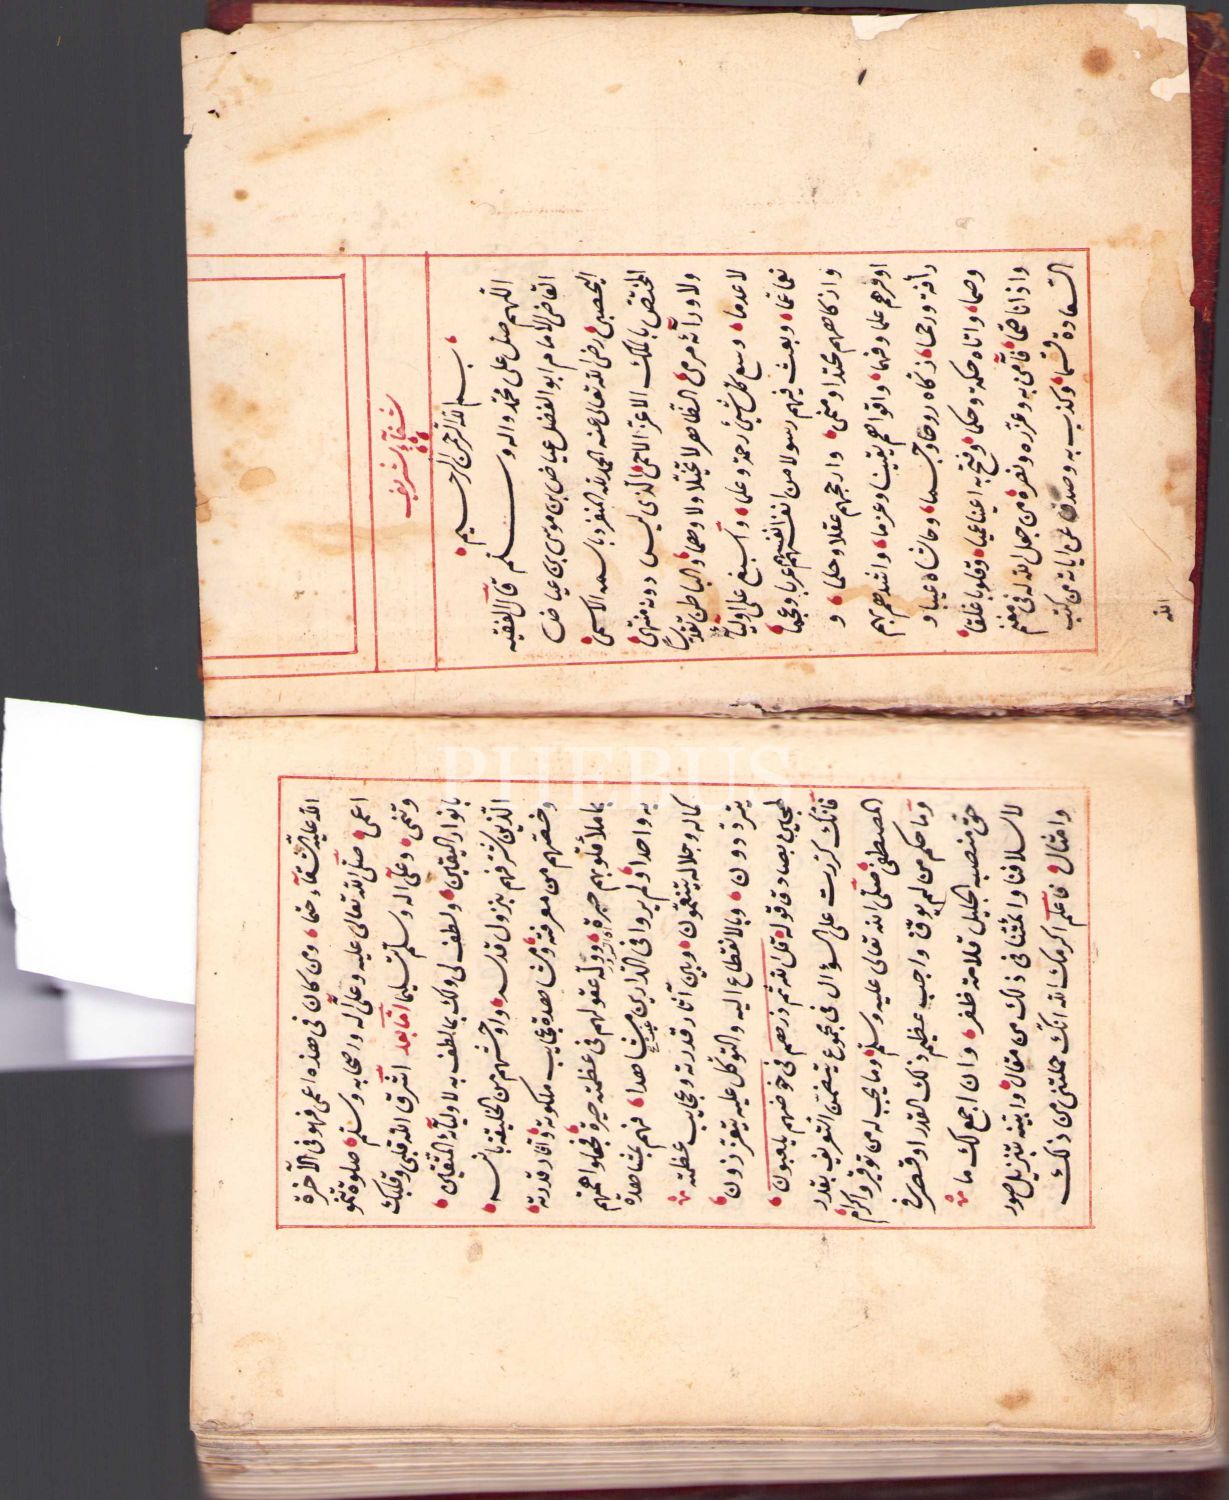 شفاء شريف
بسم الله الرحمن الرحيم
اللهم صل على محمد واله وسلم قال الفقيه
القاضى الامام ابو الفضل عياض بن موسى بن عياض
اليحصبى رضى الله تعالى عنه الحمد لله المنفرد باسمه الاسمى
المختص بالملك الاعز الاحمى الذى ليس دونه منتهى
ولا وراءه مرمى الظاهر لا تخيلا ولا وهما والباطن تقدسا
لا عدما وسع كل شىء رحمة وعلما واسبغ على اوليائه
نعما عما وبعث فيهم رسولا من انفسهم انفسهم عربا وعجما
وازكاهم محتدا ومنمى وارجحهم عقلا وحلما و
اوفرهم علما وفهما واقواهم يقينا وعزما واشدهم بهم
رأفة ورحما زكاه روحا وجسما وحاشاه عيبا و
وصما واتاه حكمة وحكما وفتح به اعينا عميا وقلوبا غلفا
واذانا صما فآمن به وعزره ونصره من جعل الله له فى مغنم
السعادة قسما وكذب به وصدف عن اياته من كتب
الله
الله عليه الشقاء حتما ومن كان فى هذه اعمى فهو فى الآخرة
اعمى صلى الله تعالى عليه وعلى اله واصحابه وسلم صلوة تنمو
وتنمى وعلى اله وسلم تسليما اما بعد اشرق الله قلبى وقلبك
بانوار اليقين ولطف لى ولك بما لطف به لاوليائه المتقين
الذين شرفهم بنزول قدسه واوحشهم من الخليقة بانسه
وخصهم من معرفته ومشاهدة عجايب ملكوته واثار قدرته
بما ملأ قلوبهم حبرة ووله عقولهم فى عظمته حيرة فجعلوا همهم
به واحدا ولم يروا فى الدارين غيره مشاهدا فهم بمشاهدة
كماله وجلاله يتنعمون وبين آثار قدرته وعجايب عظمته
يترددون وبالانقطاع اليه والتوكل عليه يتعززون
لهجين بصادق قوله قل الله ثم ذرهم فى خوضهم يلعبون
فانك كررت على السؤال فى مجموع يتضمن التعريف بقدر
المصطفى صلى الله تعالى عليه وسلم وما يجب له من توقير واكرام
وما حكم من لم يوف واجب عظيم ذلك القدر او قصر فى
حق منصبه الجليل قلامة ظفر وان اجمع لك ما
لاسلافنا وائمتنا فى ذلك من مقال وابينه بتنزيل صور
وامثال فاعلم اكرمك الله انك حملتنى من ذلك
PHEBUS